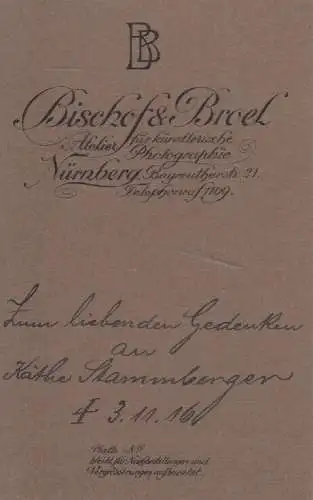 BB
Bischof & Broel
Atelier für künstlerische
Photographie
Nürnberg, Bayreutherstr. 21.
Telephonruf 1109.
Zum liebenden Gedenken
an
Käthe Stammberger
3.11.16
Platte N°
bleibt für Nachbestellungen und
Vergrösserungen aufbewahrt.